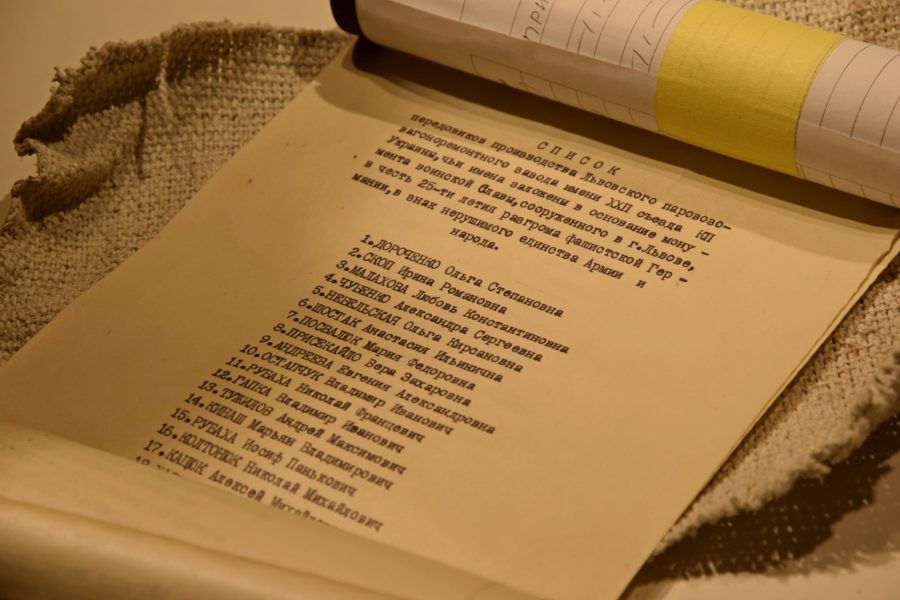 С П И С О К
передовиков производства Львовского паровозо-
вагоноремонтного завода имени XXП съезда КП
Украины, чьи имена заложены в основание мону -
мента воинской Славы, сооруженного в г.Львове,
в честь 25-ти летия разгрома фашистской Гер -
мании, в знак нерушимого единства Армии и
народа.
1.ДОРОЧЕНКО Ольга Степановна
2.СКОП Ирина Романовна
3.МАЛАХОВА Любовь Константиновна
4.ЧУБЕНКО Александра Сергеевна
5.НЕБЕЛЬСКАЯ Ольга Кирсановна
6.ШОСТАК Анастасия Ильинична
7.ПОСВАЛЮК Мария Федоровна
8.ПРИСЕКАЙЛО Вера Захаровна
9.АНДРЕЕВА Евгения Александровна
10.ОСТАПЧУК Владимир Иванович
11.РУБАХА Николай Францевич
12.ГАПКА Владимир Иванович
13.ТУЖИКОВ Андрей Максимович
14.КИНАШ Марьян Владимирович
15.РУБАХА Иосиф Панькович
16.КОЛТОНЮК Николай Михайлович
17.КАЦЮК Алексей